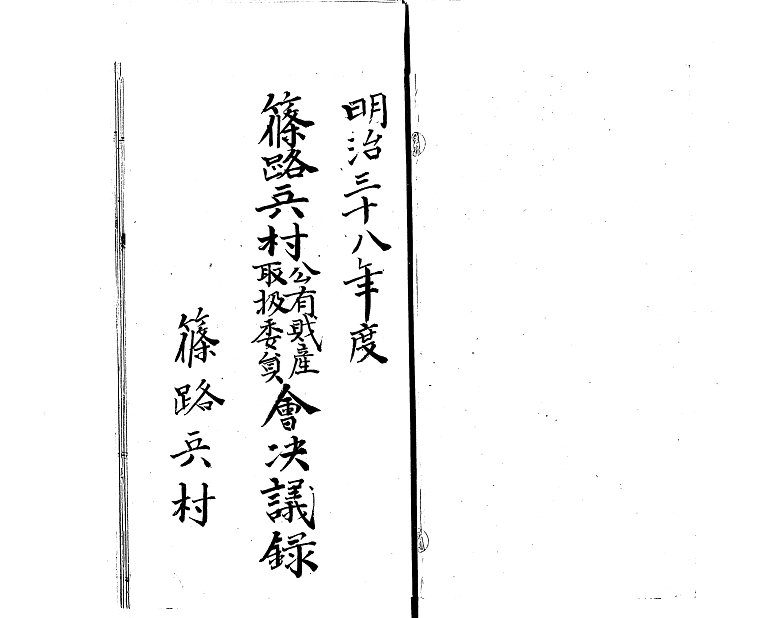 明治三十八年度
篠路兵村公有財産取扱委員會決議録
篠路兵村